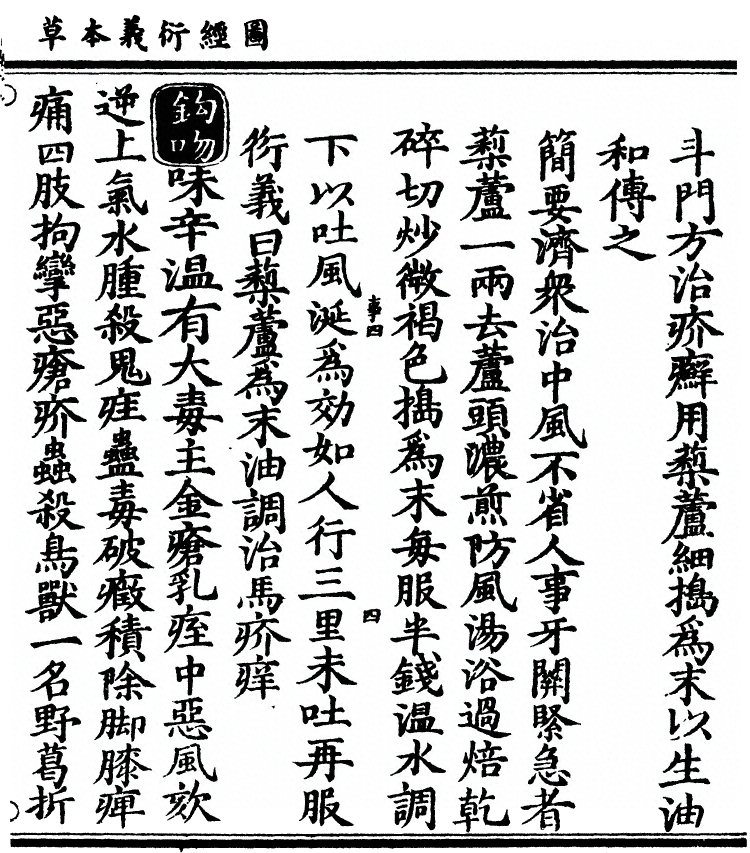 圖經衍義本草
斗門方治疥癬用藜蘆細搗爲末以生油
和傳之
簡要濟衆治中風不省人事牙關緊急者
藜蘆一兩去蘆頭濃煎防風湯浴過焙乾
碎切炒微褐色搗爲末每服半錢温水調
下以吐風涎爲効如人行三里未吐再服
事四
四
衍義曰藜蘆爲末油調治馬疥痒
鈎吻味辛温有大毒主金瘡乳痓中惡風欬
逆上氣水腫殺鬼疰蠱毒破癥積除脚膝痺
痛四肢拘攣惡瘡疥蟲殺鳥獸一名野葛折